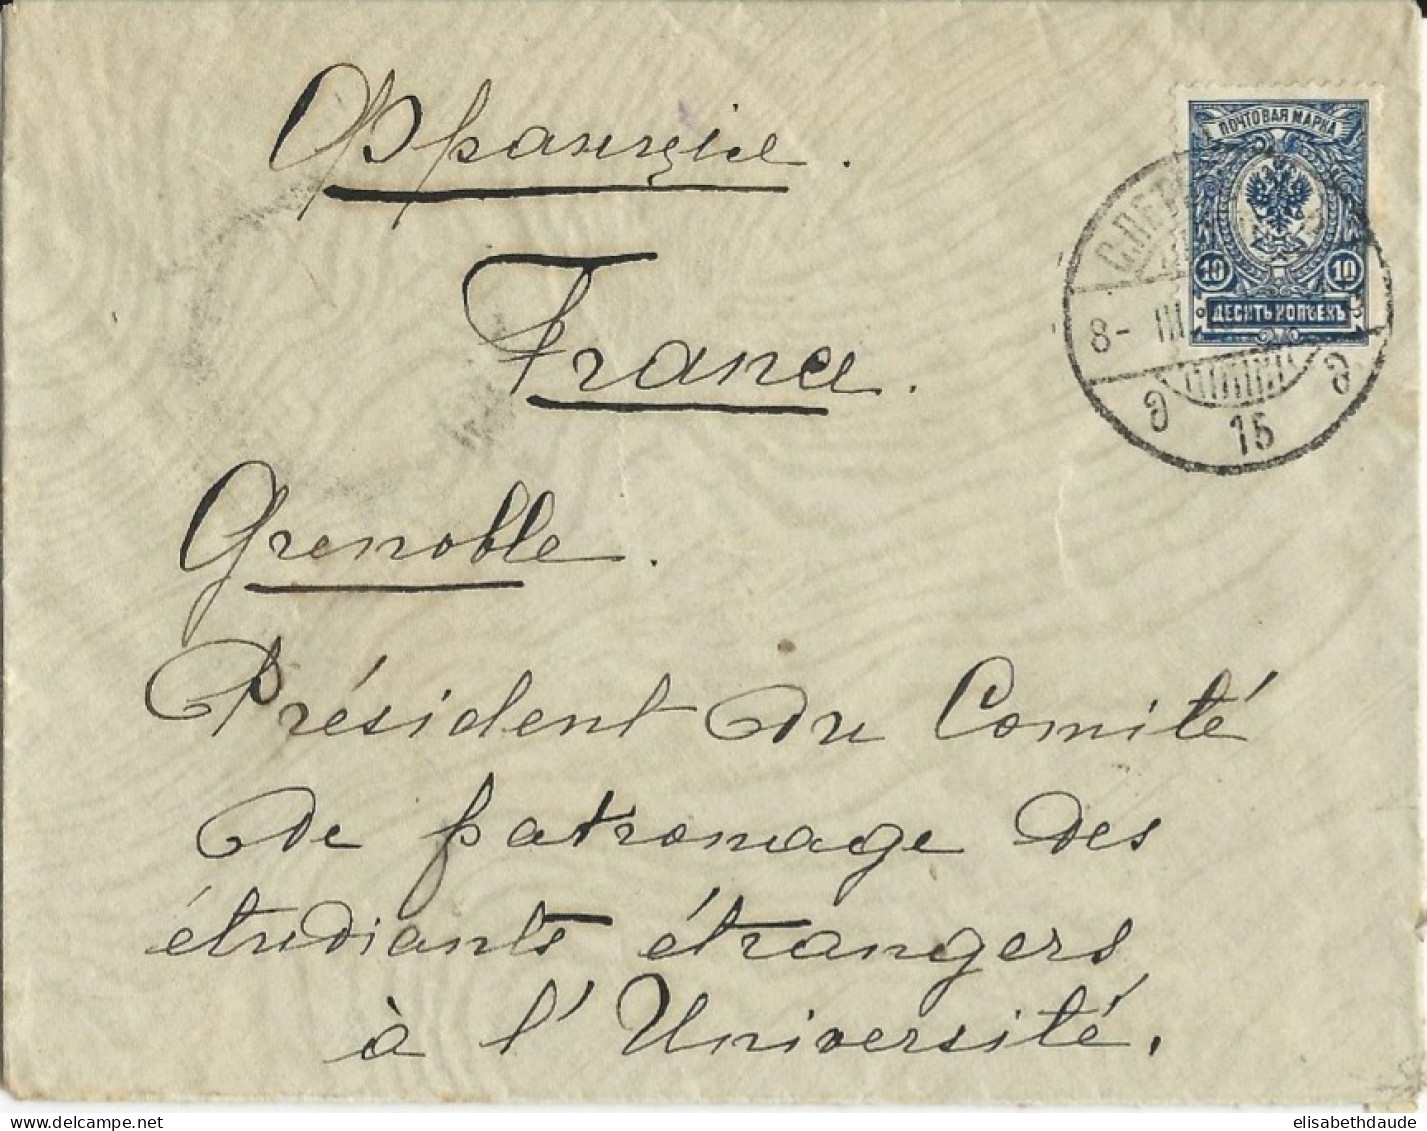 Франція.
France.
Grenoble.
Président du Comité
de patronage des
étudiants étrangers
à l'Université.
ПОЧТОВАЯ МАРКА
10 10
ДЕСЯТЬ КОПѢЕКЪ
С.ПЕТ
8- III
15
elisabethdaude